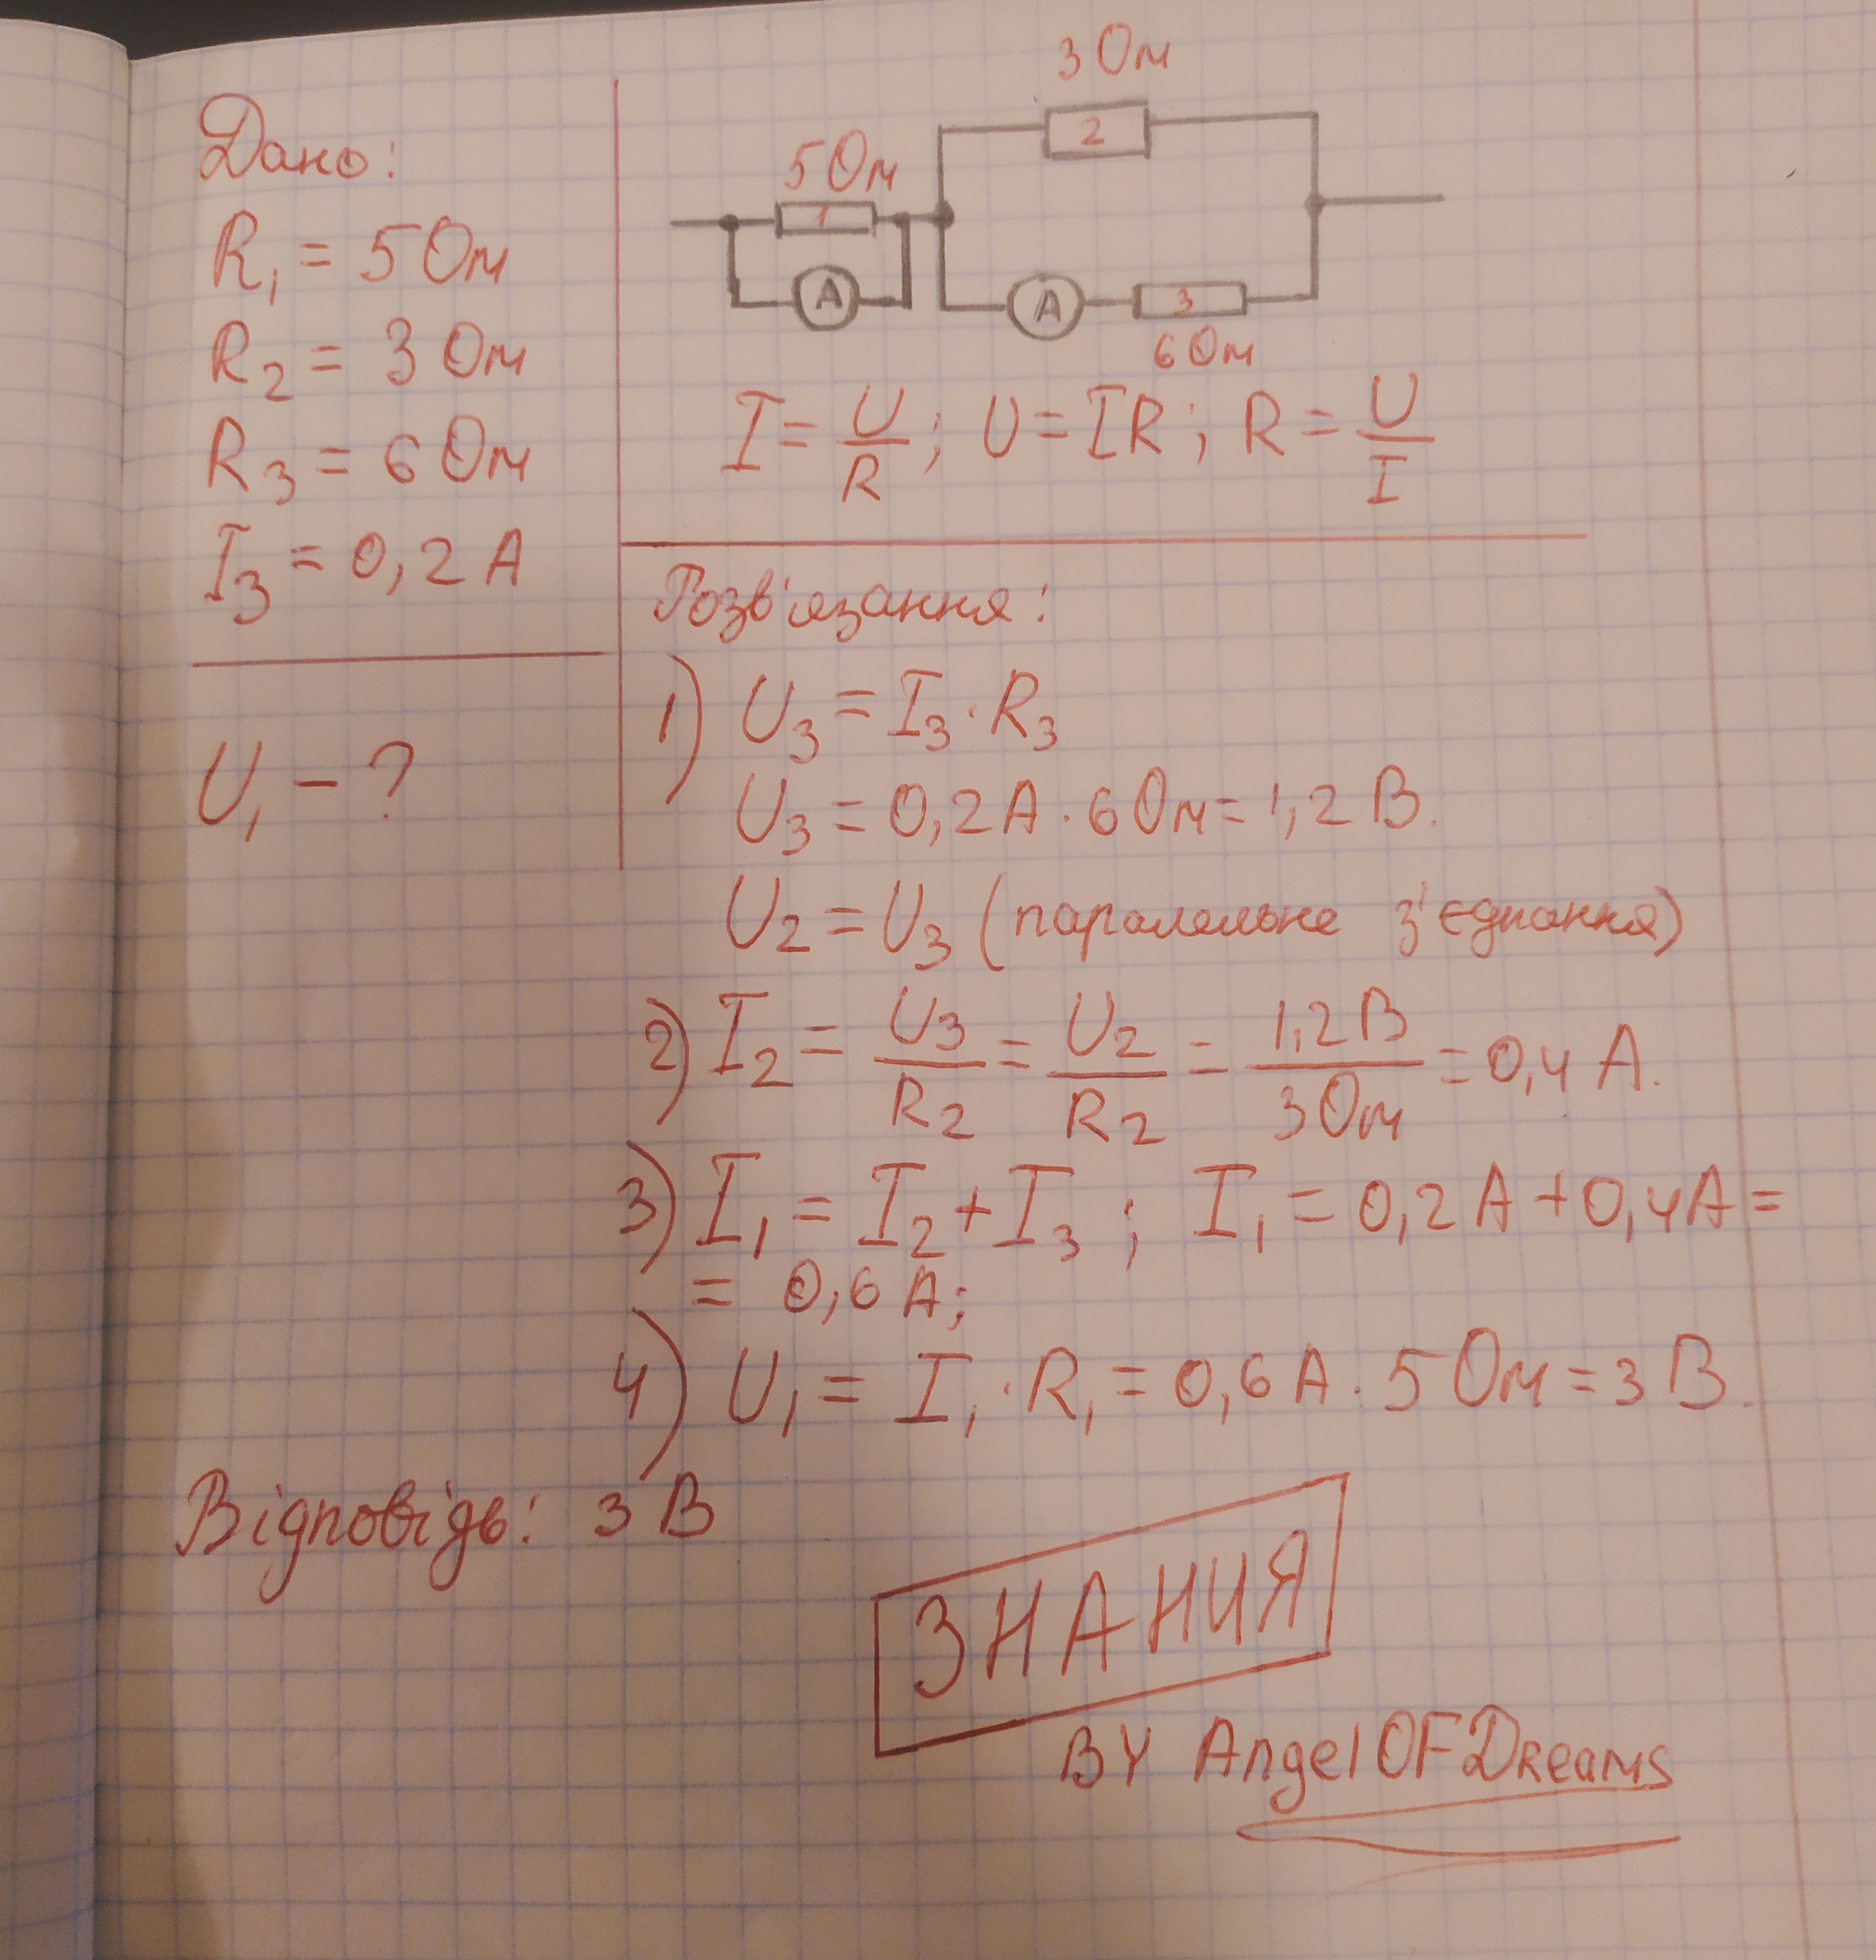 Дано:
R₁ = 5 Ом
R₂ = 3 Ом
R₃ = 6 Ом
I₃ = 0,2 А
U₁ - ?
3 Ом
2
5 Ом
1
А
А
3
6 Ом
I = U/R ; U = IR ; R = U/I
Розв'язання:
1) U₃ = I₃ · R₃
U₃ = 0,2 А · 6 Ом = 1,2 В.
U₂ = U₃ (паралельне з'єднання)
2) I₂ = U₃/R₂ = U₂/R₂ = 1,2 В/3 Ом = 0,4 А.
3) I₁ = I₂ + I₃ ; I₁ = 0,2 А + 0,4 А =
= 0,6 А;
4) U₁ = I₁ · R₁ = 0,6 А · 5 Ом = 3 В.
Відповідь: 3 В
ЗНАНИЯ
BY AngelOFDreams